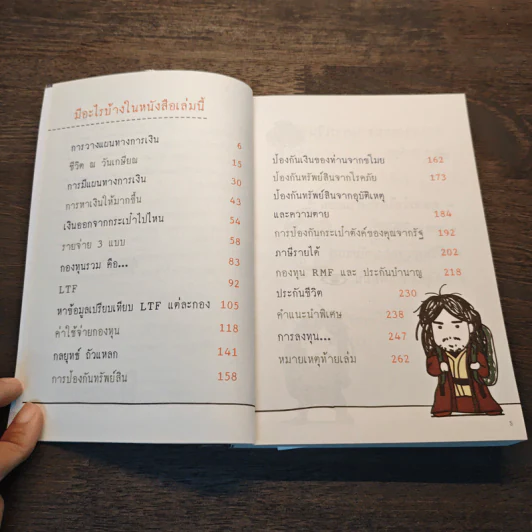 มีอะไรบ้างในหนังสือเล่มนี้
การวางแผนทางการเงิน 6
ชีวิต ณ วันเกษียณ 15
การมีแผนทางการเงิน 30
การหาเงินให้มากขึ้น 43
เงินออกจากกระเป๋าไปไหน 54
รายจ่าย 3 แบบ 58
กองทุนรวม คือ... 83
LTF 92
หาข้อมูลเปรียบเทียบ LTF แต่ละกอง 105
ค่าใช้จ่ายกองทุน 118
กลยุทธ์ ถัวแหลก 141
การป้องกันทรัพย์สิน 158
ป้องกันเงินของท่านจากขโมย 162
ป้องกันทรัพย์สินจากโรคภัย 173
ป้องกันทรัพย์สินจากอุบัติเหตุ
และความตาย 184
การป้องกันกระเป๋าตังค์ของคุณจากรัฐ 192
ภาษีรายได้ 202
กองทุน RMF และ ประกันบำนาญ 218
ประกันชีวิต 230
คำแนะนำพิเศษ 238
การลงทุน... 247
หมายเหตุท้ายเล่ม 262